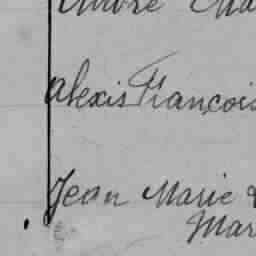 Alexis François
Jean Marie
Mar